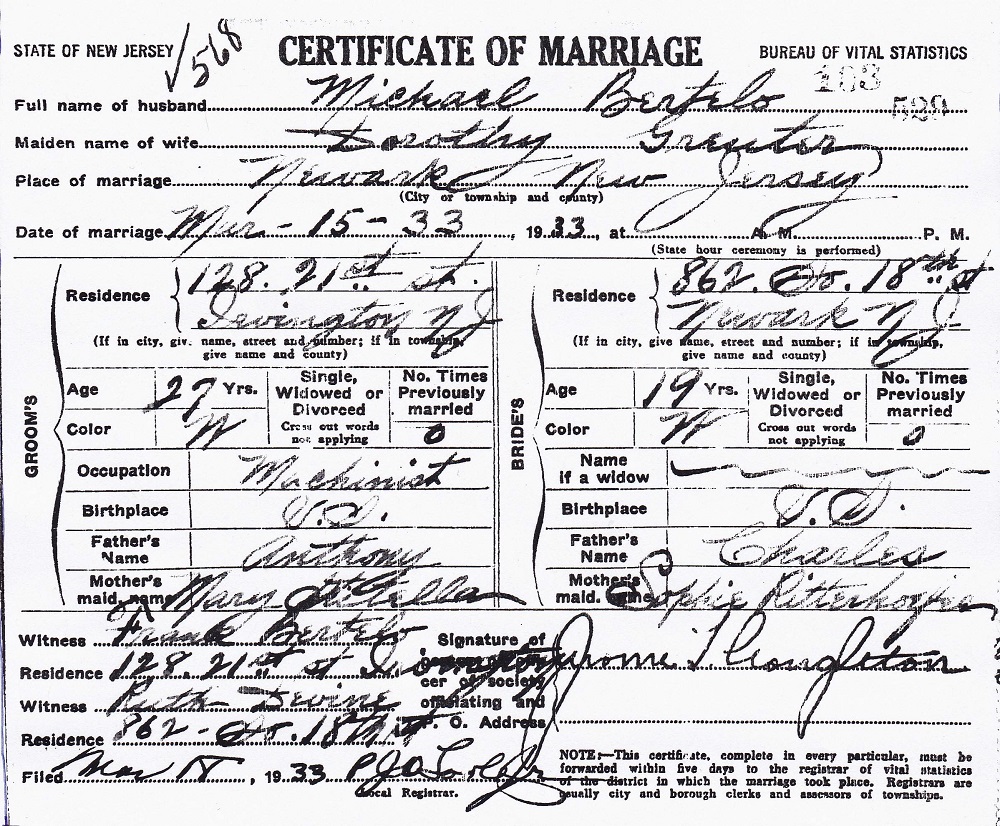 STATE OF NEW JERSEY 568 CERTIFICATE OF MARRIAGE BUREAU OF VITAL STATISTICS
103
Full name of husband Michael Bertelo 529
Maiden name of wife Dorothy Greuter
Place of marriage Newark New Jersey
(City or township and county)
Date of marriage Mar - 15 - 33, 1933, at A. M. P. M.
(State hour ceremony is performed)
GROOM'S
Residence 128. 21st st.
Irvington N J
(If in city, give name, street and number; if in township,
give name and county)
Age 27 Yrs.
Color W
Single,
Widowed or
Divorced
Cross out words
not applying
No. Times
Previously
married
0
Occupation Machinist
Birthplace U.S.
Father's
Name Anthony
Mother's
maid. name Mary
BRIDE'S
Residence 862. So. 18th st
Newark N J
(If in city, give name, street and number; if in township,
give name and county)
Age 19 Yrs.
Color W
Single,
Widowed or
Divorced
Cross out words
not applying
No. Times
Previously
married
0
Name
if a widow
Birthplace U.S.
Father's
Name Charles
Mother's
maid. name Sophie
Witness Frank Bertelo
Residence 128. 21st st
Witness Ruth Devine
Residence 862 - So. 18th st
Signature of
cer of society
officiating and
P. O. Address
Filed Mar, 1933
Local Registrar.
NOTE:—This certificate, complete in every particular, must be
forwarded within five days to the registrar of vital statistics
of the district in which the marriage took place. Registrars are
usually city and borough clerks and assessors of townships.